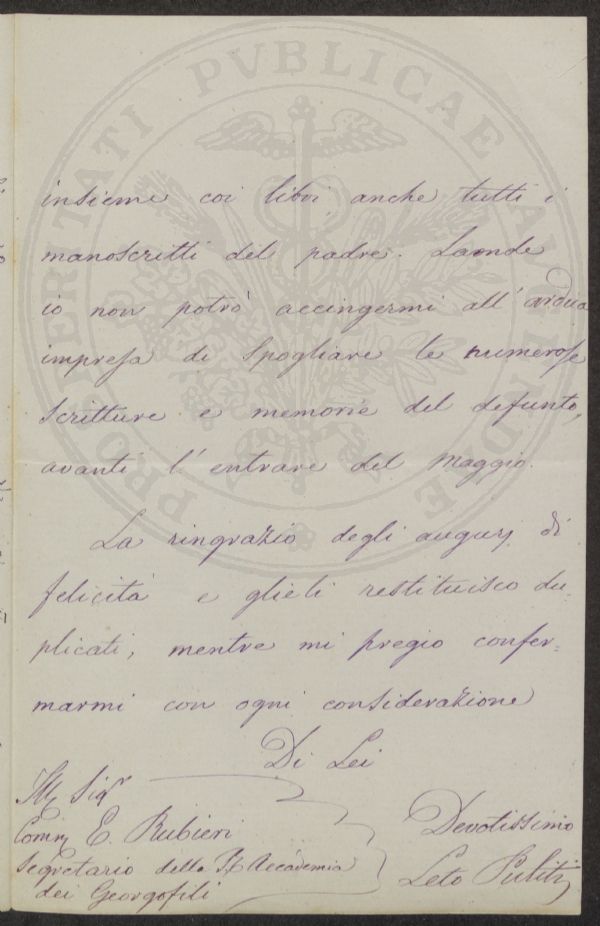 PROSPERITATI PVBLICAE AVGENDAE
insieme coi libri anche tutti i
manoscritti del padre. Laonde
io non potrò accingermi all'ardua
impresa di spogliare le numerose
scritture e memorie del defunto,
avanti l'entrare del Maggio.
La ringrazio degli augurj di
felicità e glieli restituisco du=
plicati, mentre mi pregio confer=
marmi con ogni considerazione
Di Lei
Devotissimo
Leto Puliti
Sigr
Comm E. Rubieri
Segretario della R. Accademia
dei Georgofili